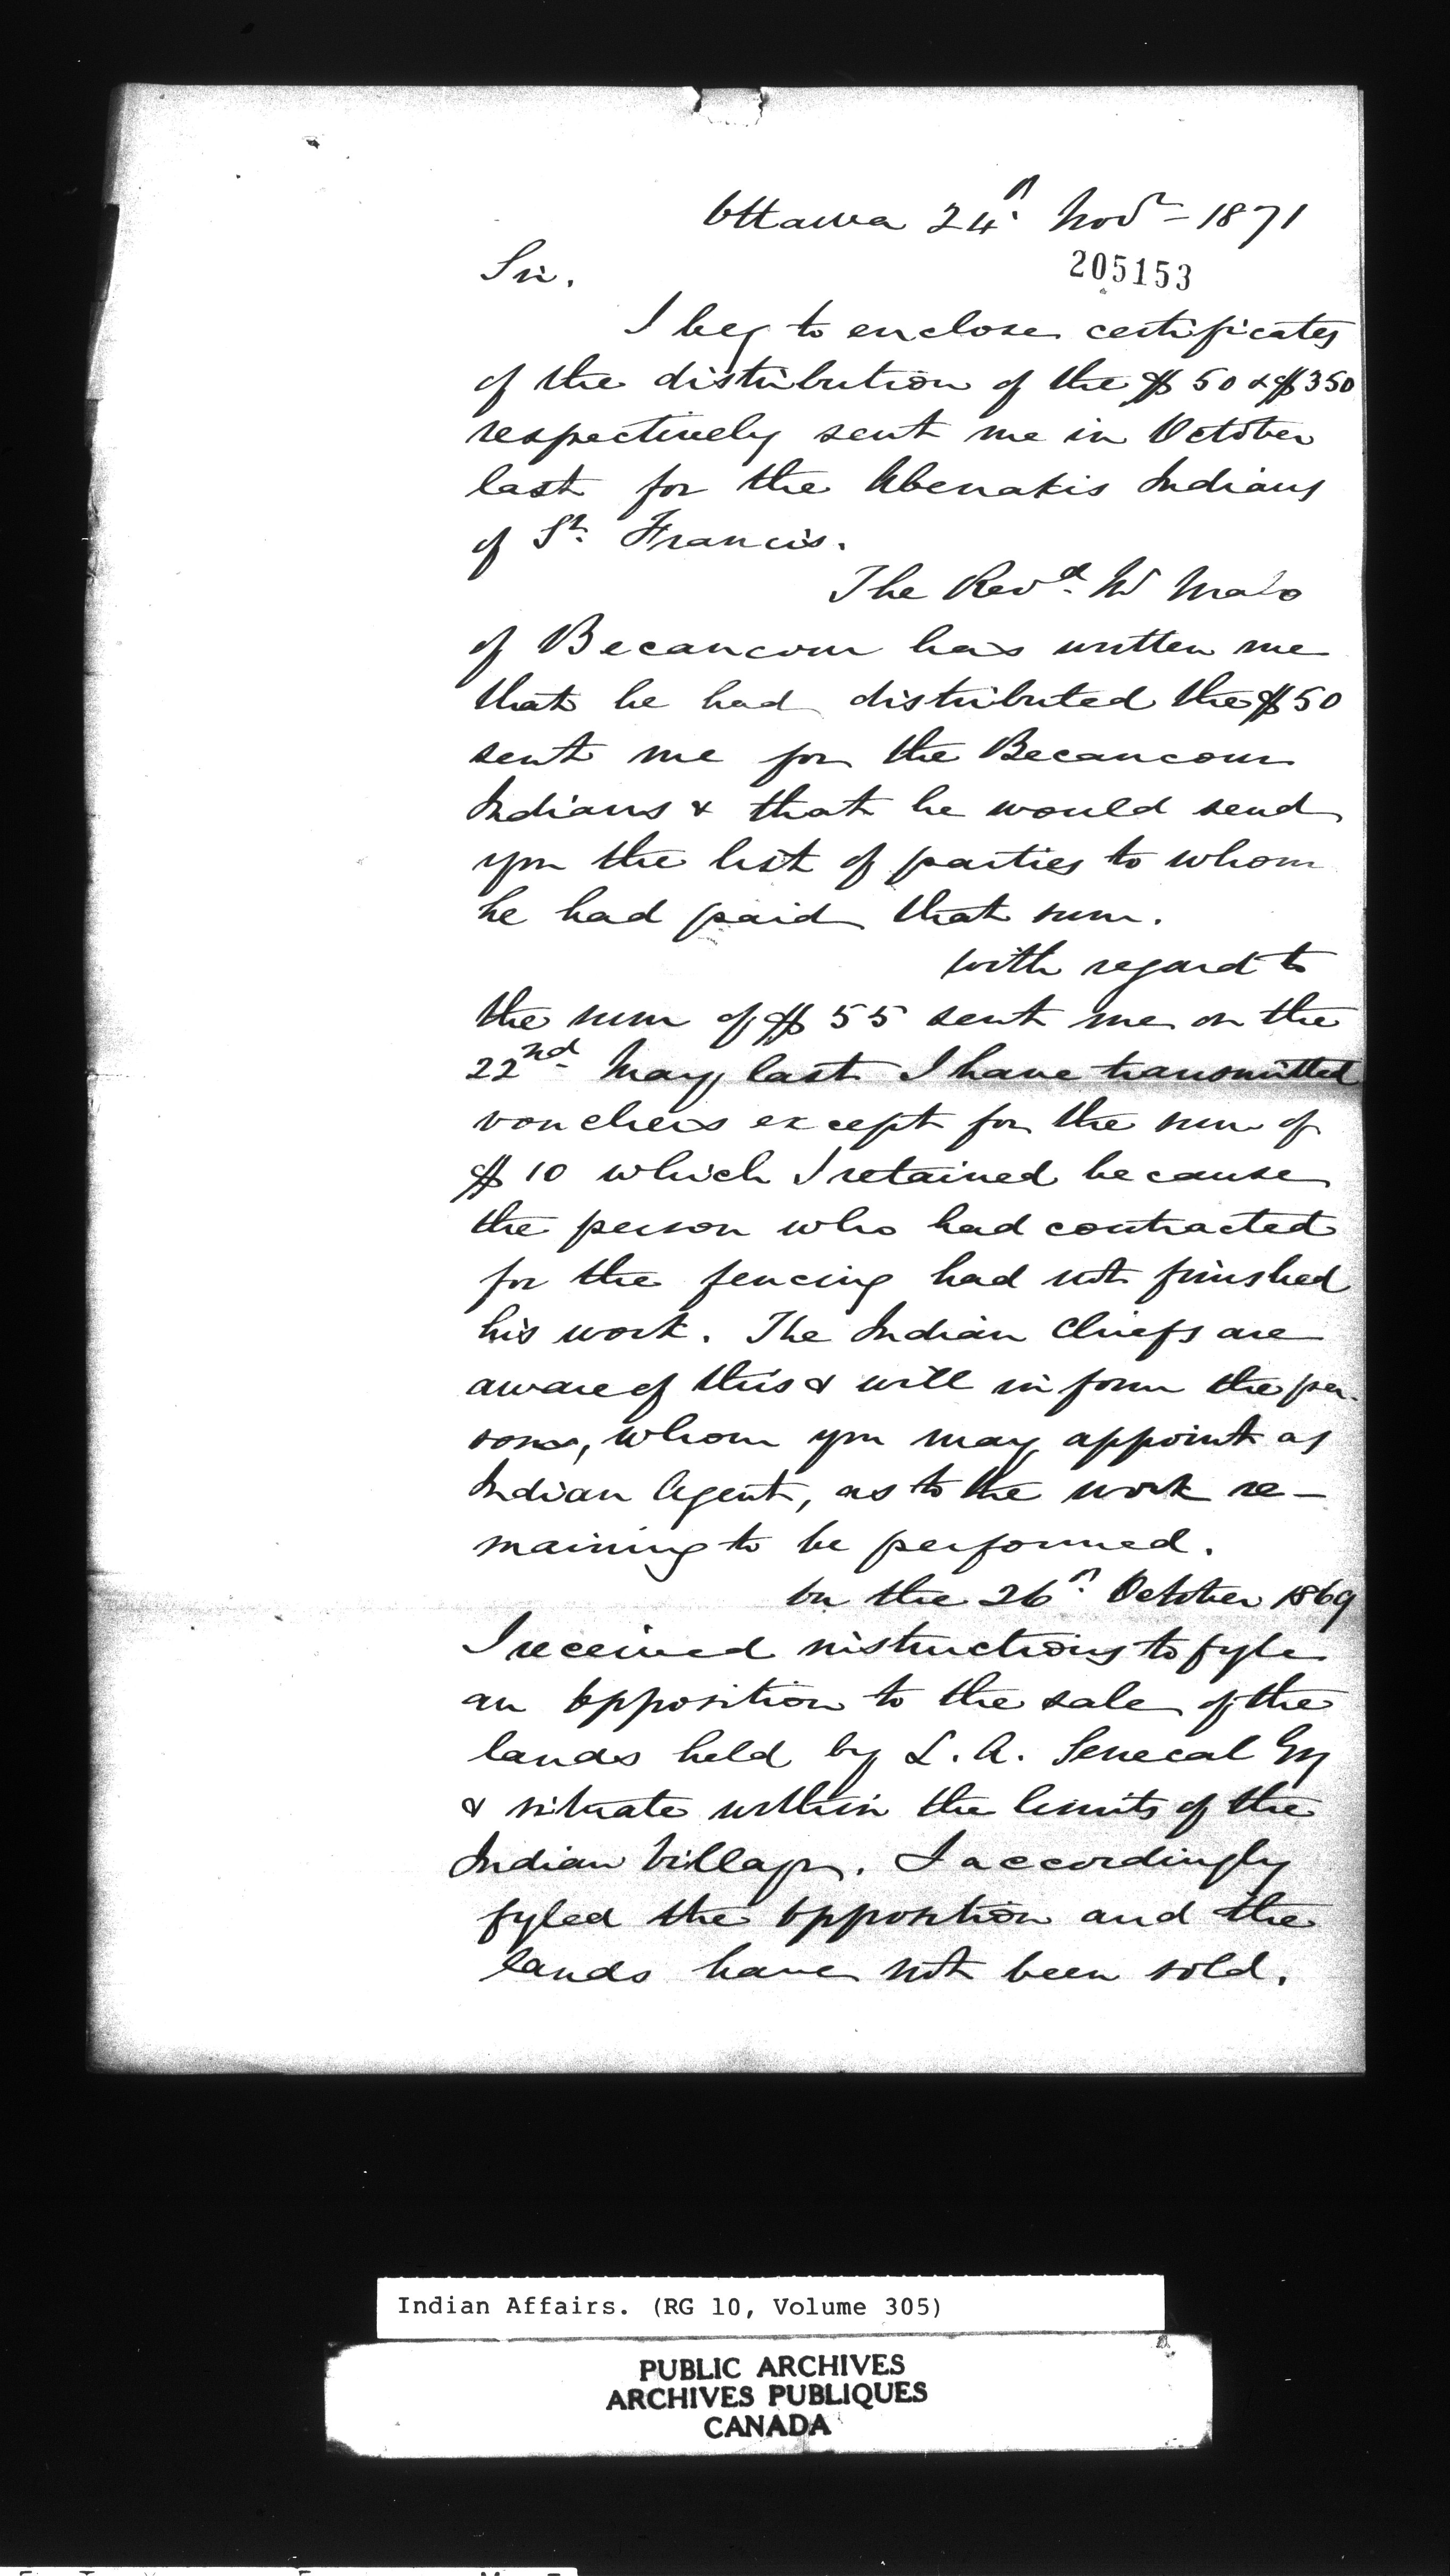 Ottawa 24th Novr - 1871
205153
Sir.
I beg to enclose certificates
of the distribution of the $50 & $350
respectively sent me in October
last for the Abenakis Indians
of St. Francis.
The Revd. Mr Malo
of Becancour has written me
that he had distributed the $50
sent me for the Becancour
Indians & that he would send
you the list of parties to whom
he had paid that sum.
With regard to
the sum of $55 sent me on the
22nd. May last I have transmitted
vouchers except for the sum of
$10 which I retained because
the person who had contracted
for the fencing had not finished
his work. The Indian Chiefs are
aware of this & will inform the per-
sons, whom you may appoint as
Indian Agent, as to the work re-
maining to be performed.
On the 26th October 1869
I received instructions to fyle
an Opposition to the sale of the
lands held by L. A. Senecal Esq
& situate within the limits of the
Indian Village. I accordingly
fyled the Opposition and the
lands have not been sold.
Indian Affairs. (RG 10, Volume 305)
PUBLIC ARCHIVES
ARCHIVES PUBLIQUES
CANADA